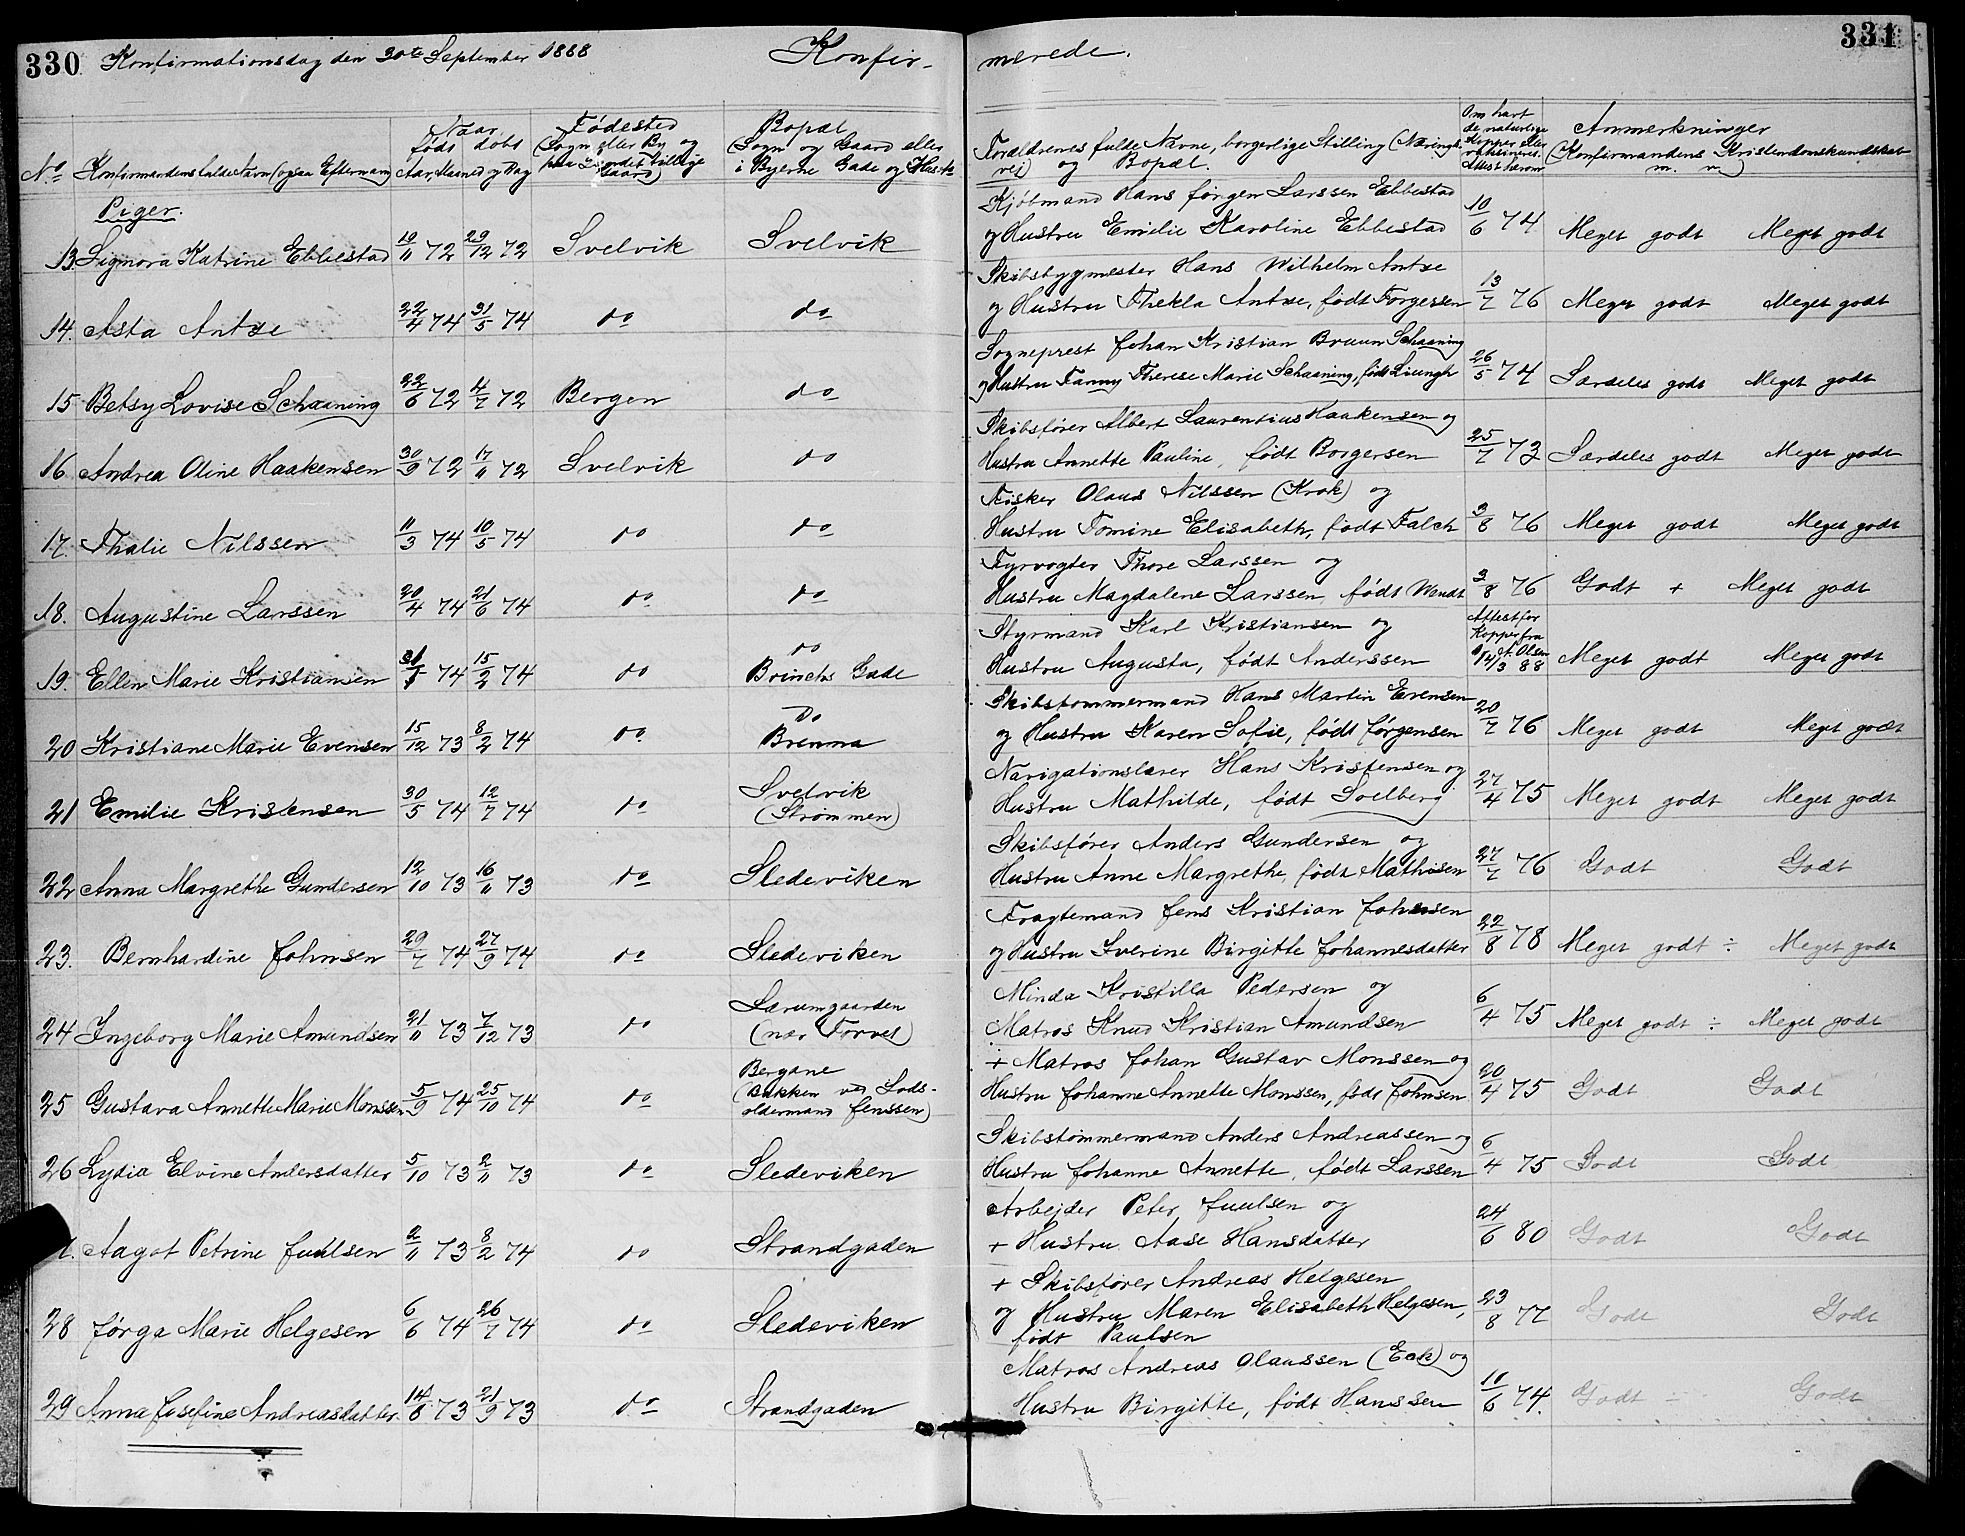 330 Konfirmationsdag den 30te September 1888 Konfir- merede. 331
No Konfirmandens fulde Navn (ogsaa Efternavn) Naar født døbt Aar, Maaned og Dag Fødested (Sogn eller By og paa Landet tillige Gaard) Bopæl (Sogn og Gaard eller i Byerne Gade og Hus No Forældrenes fulde Navne, borgerlige Stilling (Næringsvei) og Bopæl. Om havt de naturlige Kopper eller vaksineret. Attest herom Anmerkninger (Konfirmandens Kristendomskundskab m. v.)
Piger.
Kjøbmand Hans Jørgen Larssen Ebbestad
13. Signora Katrine Ebbestad 19/11 72 29/12 72 Svelvik Svelvik og Hustru Emilie Karoline Ebbestad 10/6 74 Meget godt Meget godt
Skibsbygmester Hans Wilhelm Antze
14. Asta Antze 22/4 74 31/5 74 do do og Hustru Thekla Antze, født Torgersen 13/7 76 Meget godt Meget godt
Sogneprest Johan Kristian Bruun Schaaning
15 Betsy Lovise Schaaning 22/6 72 4/7 72 Bergen do og Hustru Fanny Therese Marie Schaaning, født Liungh 26/5 74 Særdeles godt Meget godt
Skibsfører Albert Laurentius Haakensen og
16 Andrea Oline Haakensen 30/9 72 17/11 72 Svelvik do Hustru Annette Pauline, født Borgersen 25/7 73 Særdeles godt Meget godt
Fisker Olaus Nilssen (Krok) og
17. Thalie Nilssen 11/3 74 10/5 74 do do Hustru Tomine Elisabeth, født Falch 3/8 76 Meget godt Meget godt
Fyrvogter Thore Larssen og
18. Augustine Larssen 20/4 74 21/6 74 do do Hustru Magdalene Larssen, født Wendt 3/8 76 Godt + Meget godt
Styrmand Karl Kristiansen og Attest for Kopper fra
19. Ellen Marie Kristiansen 31/1 74 15/2 74 do do Brinchs Gade Hustru Augusta, født Anderssen A. Olsen 14/3 88 Meget godt Meget godt
Skibstømmermand Hans Martin Evensen
20 Kristiane Marie Evensen 15/12 73 8/2 74 do do Brenna og Hustru Karen Sofie, født Jørgensen 20/7 76 Meget godt Meget godt
Navigationslærer Hans Kristensen og
21 Emilie Kristensen 30/5 74 12/7 74 do Svelvik (Strømmen) Hustru Mathilde, født Solberg 27/4 75 Meget godt Meget godt
Skibsfører Anders Gundersen og
22 Anna Margrethe Gundersen 12/10 73 16/11 73 do Sledeviken Hustru Anne Margrethe, født Mathisen 27/7 76 Godt Godt
Fragtemand Jens Kristian Johnsen
23. Bernhardine Johnsen 29/7 74 27/9 74 do Sledeviken og Hustru Severine Birgitte Johannesdatter 22/8 78 Meget godt ÷ Meget godt
Minda Kristilla Pedersen og
24 Ingeborg Marie Amundsen 21/11 73 7/12 73 do Lærumgaarden (nær Torvet) Matros Knud Kristian Amundsen 6/4 75 Meget godt ÷ Meget godt
+ Matros Johan Gustav Monssen og
25 Gustava Annette Marie Monssen 5/9 74 25/10 74 do Bergane (Bakken ved Lods-oldermand Jenssen) Hustru Johanne Annette Monssen, født Johnsen 20/4 75 Godt Godt
Skibstømmermand Anders Andreassen og
26 Lydia Elvine Andersdatter 5/10 73 2/11 73 do Sledeviken Hustru Johanne Annette, født Larssen 6/4 75 Godt Godt
Arbejder Peter Juulsen og
Aagot Petrine Juulsen 2/11 73 8/2 74 do Strandgaden + Hustru Aase Hansdatter 24/6 80 Godt Godt
+ Skibsfører Andreas Helgesen
28 Jørga Marie Helgesen 6/6 74 26/7 74 do Sledeviken og Hustru Maren Elisabeth Helgesen, 23/8 77 Godt Godt
født Paulsen
Matros Andreas Olaussen (Eek) og
29 Anna Josefine Andreasdatter 14/8 73 21/9 73 do Strandgaden Hustru Birgitte, født Hanssen 10/6 74. Godt ÷ Godt